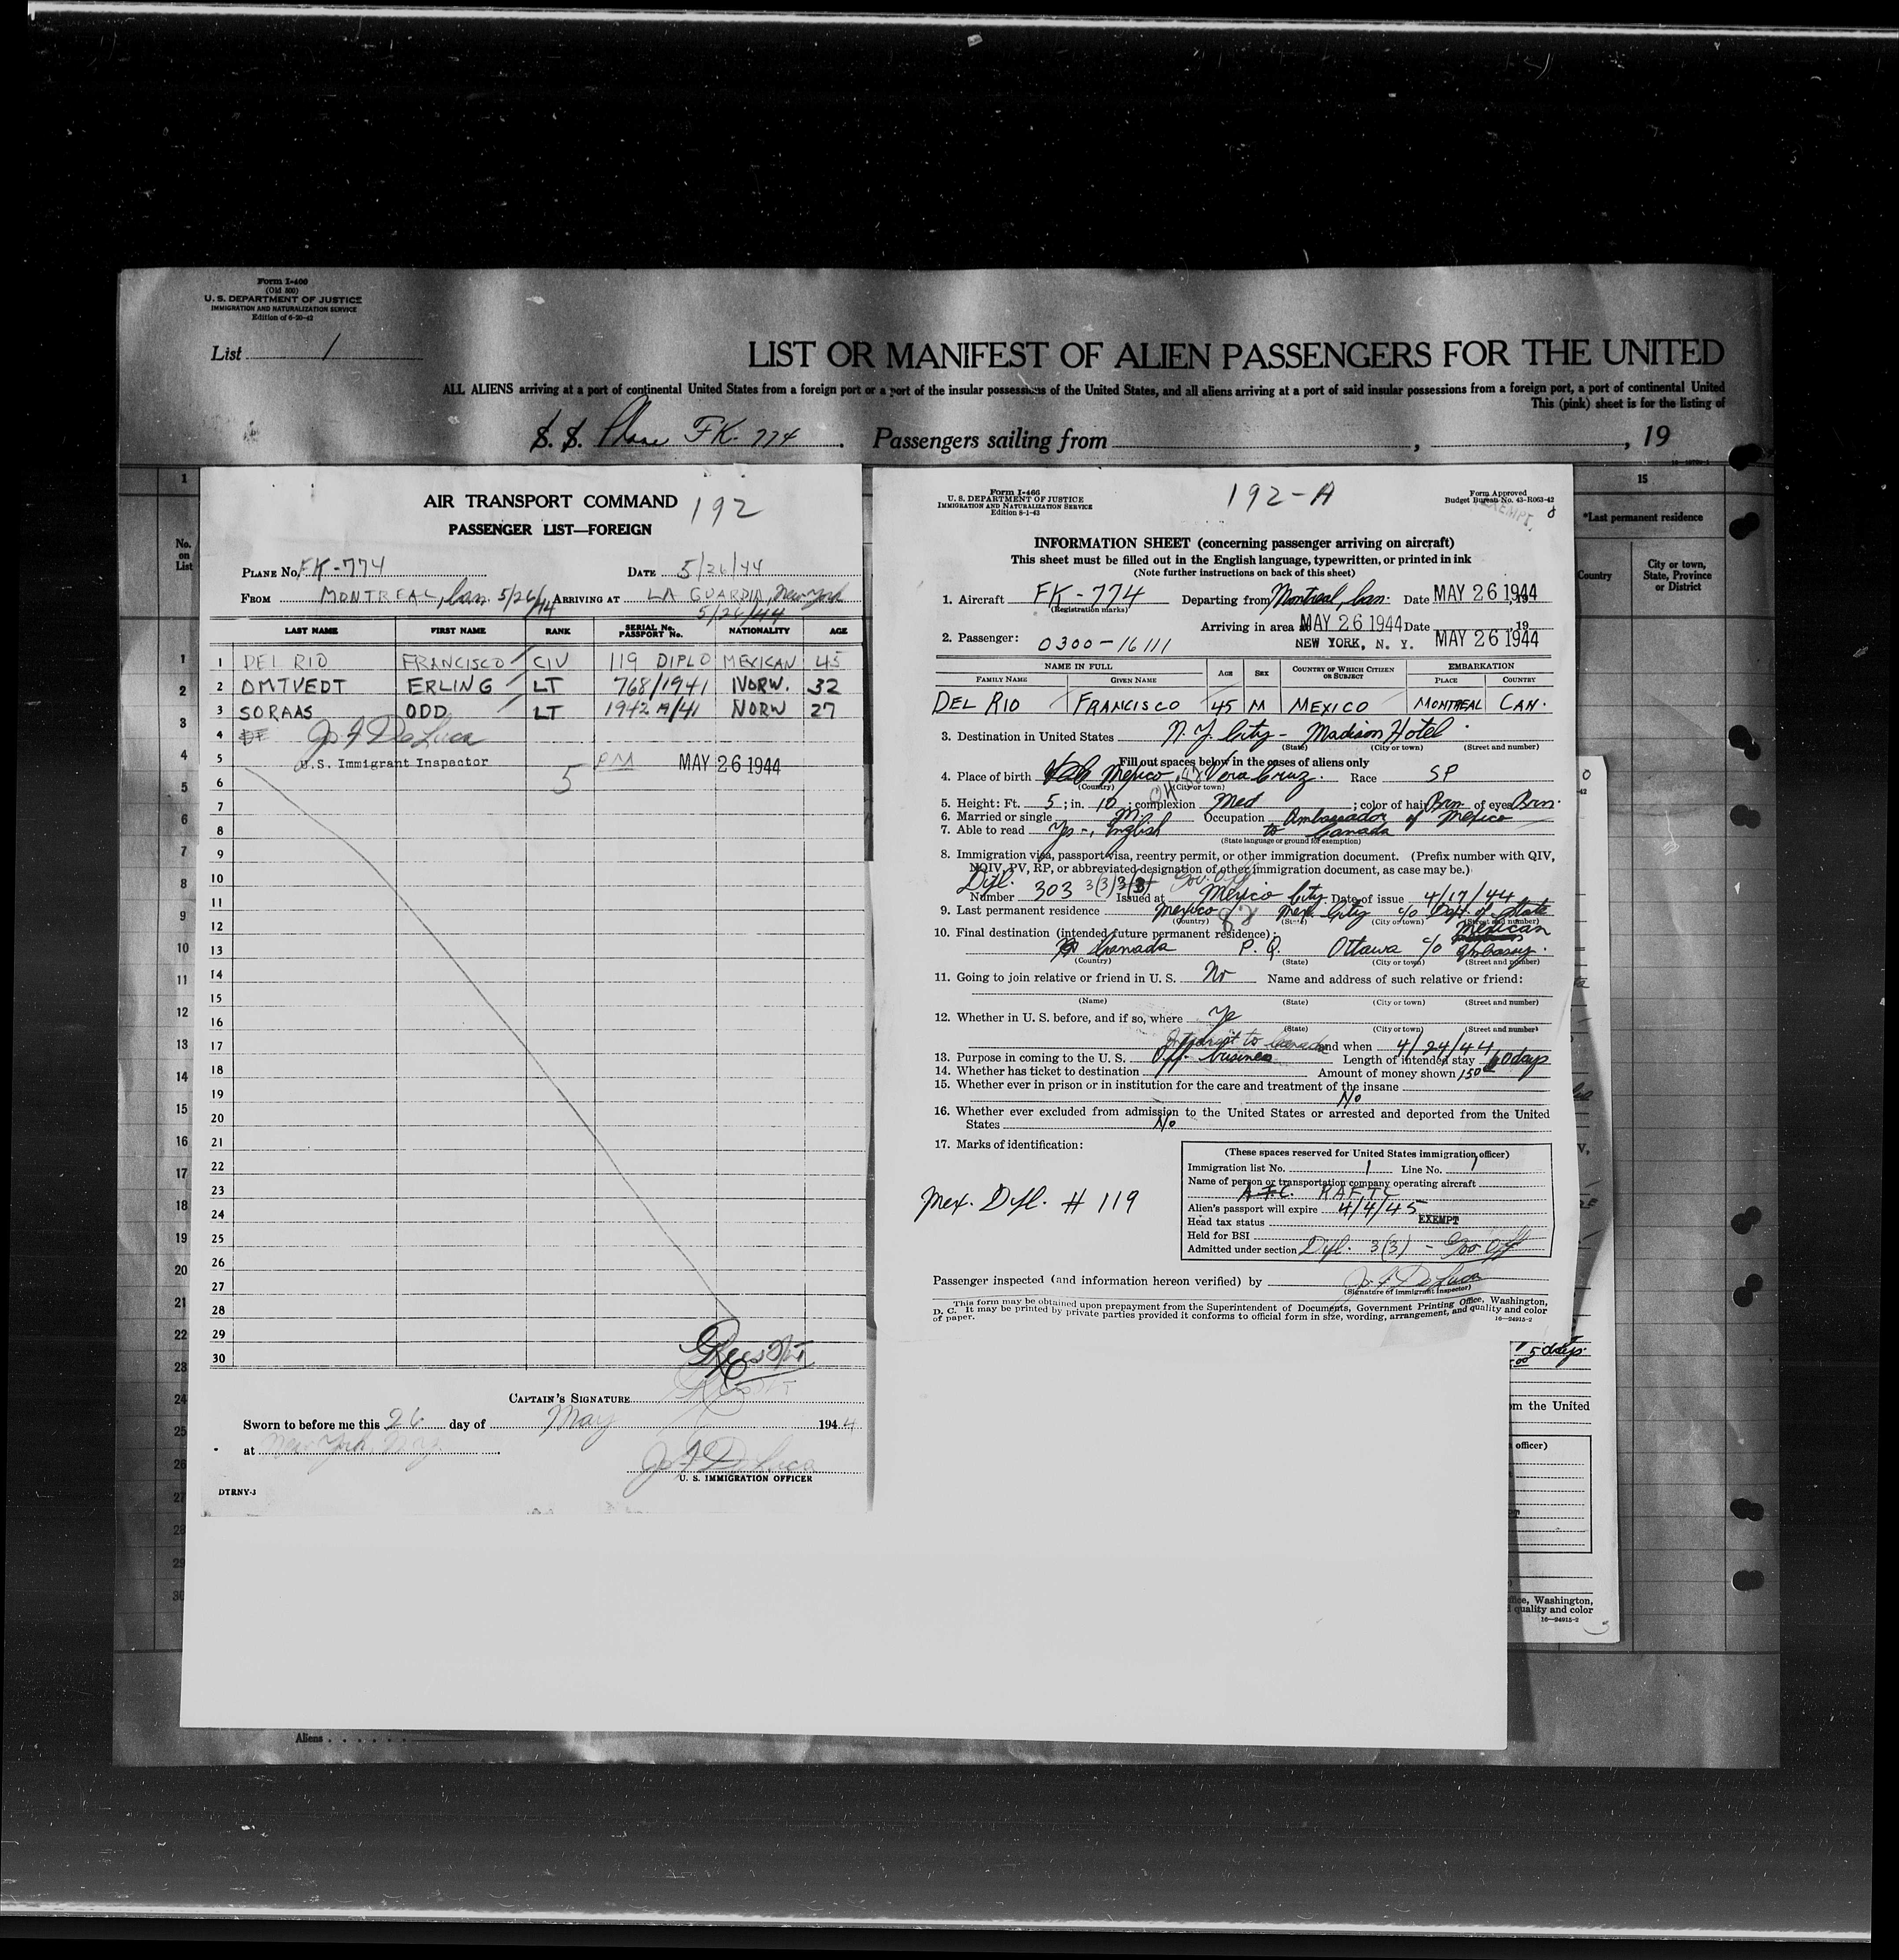 Form I-400
(Old 500)
U. S. DEPARTMENT OF JUSTICE
IMMIGRATION AND NATURALIZATION SERVICE
Edition of 6-20-42
List 1
LIST OR MANIFEST OF ALIEN PASSENGERS FOR THE UNITED
ALL ALIENS arriving at a port of continental United States from a foreign port or a port of the insular possessions of the United States, and all aliens arriving at a port of said insular possessions from a foreign port, a port of continental United
This (pink) sheet is for the listing of
S. S. Plane FK-774. Passengers sailing from , , 19
1
No. on List
AIR TRANSPORT COMMAND 192
PASSENGER LIST—FOREIGN
PLANE No. FK-774 DATE 5/26/44
FROM MONTREAL, Can 5/26/44 ARRIVING AT LA GUARDIA, New York
5/26/44
LAST NAME FIRST NAME RANK SERIAL No. PASSPORT No. NATIONALITY AGE
1 DEL RIO FRANCISCO CIV 119 DIPLO MEXICAN 45
2 OMTVEDT ERLING LT 768/1941 NORW. 32
3 SORAAS ODD LT 1942 A/41 NORW 27
4 Jo. F. DeLuca
5 U.S. Immigrant Inspector 5 PM MAY 26 1944
6
7
8
9
10
11
12
13
14
15
16
17
18
19
20
21
22
23
24
25
26
27
28
29
30
CAPTAIN'S SIGNATURE
Sworn to before me this 26 day of May 1944
at New York, N.Y.
Jo. F. DeLuca
U. S. IMMIGRATION OFFICER
DTRNY-3
Form I-466
U. S. DEPARTMENT OF JUSTICE
IMMIGRATION AND NATURALIZATION SERVICE
Edition 8-1-43
192-A
Form Approved
Budget Bureau No. 43-R063-42
EXEMPT
8
INFORMATION SHEET (concerning passenger arriving on aircraft)
This sheet must be filled out in the English language, typewritten, or printed in ink
(Note further instructions on back of this sheet)
1. Aircraft FK-774 Departing from Montreal, Can. Date MAY 26 1944
(Registration marks)
Arriving in area MAY 26 1944 Date , 19
2. Passenger: 0300-16111 NEW YORK, N. Y. MAY 26 1944
NAME IN FULL AGE SEX COUNTRY OF WHICH CITIZEN OR SUBJECT EMBARKATION
FAMILY NAME GIVEN NAME PLACE COUNTRY
DEL RIO FRANCISCO 45 M MEXICO MONTREAL CAN.
3. Destination in United States N. Y. City - Madison Hotel
(State) (City or town) (Street and number)
Fill out spaces below in the cases of aliens only
4. Place of birth Mexico, Vera Cruz. Race SP
(Country) (City or town)
5. Height: Ft. 5; in. 10; complexion Med; color of hair Brn of eyes Brn.
6. Married or single M. Occupation Ambassador of Mexico
7. Able to read Yes -, English to Canada
(State language or ground for exemption)
8. Immigration visa, passport visa, reentry permit, or other immigration document. (Prefix number with QIV,
NQIV, PV, RP, or abbreviated designation of other immigration document, as case may be.)
Dipl. Number 303 3(3) Gov. Off Issued at Mexico City Date of issue 4/17/44
9. Last permanent residence Mexico Mex. City c/o Dept of State
(Country) (State) (City or town) (Street and number)
10. Final destination (intended future permanent residence):
Canada P. Q. Ottawa c/o Mexican Embassy.
(Country) (State) (City or town) (Street and number)
11. Going to join relative or friend in U. S. No Name and address of such relative or friend:
(Name) (State) (City or town) (Street and number)
12. Whether in U. S. before, and if so, where Yes
(State) (City or town) (Street and number)
In transit to Canada and when 4/24/44
13. Purpose in coming to the U. S. Off. business Length of intended stay 60 days
14. Whether has ticket to destination Amount of money shown 150
15. Whether ever in prison or in institution for the care and treatment of the insane
No
16. Whether ever excluded from admission to the United States or arrested and deported from the United
States No
17. Marks of identification:
Mex. Dipl. # 119
(These spaces reserved for United States immigration officer)
Immigration list No. 1 Line No. 1
Name of person or transportation company operating aircraft
A.T.C. RAFTC
Alien's passport will expire 4/4/45
Head tax status EXEMPT
Held for BSI
Admitted under section Dipl. 3(3) - Gov Off
Passenger inspected (and information hereon verified) by Jo. F. DeLuca
(Signature of immigrant inspector)
This form may be obtained upon prepayment from the Superintendent of Documents, Government Printing Office, Washington,
D. C. It may be printed by private parties provided it conforms to official form in size, wording, arrangement, and quality and color
of paper. 16—24915-2
15
*Last permanent residence
Country City or town, State, Province or District
5 days
om the United
officer)
ffice, Washington,
quality and color
16—24915-2
1
2
3
4
5
6
7
8
9
10
11
12
13
14
15
16
17
18
19
20
21
22
23
24
25
26
27
28
29
30
Aliens